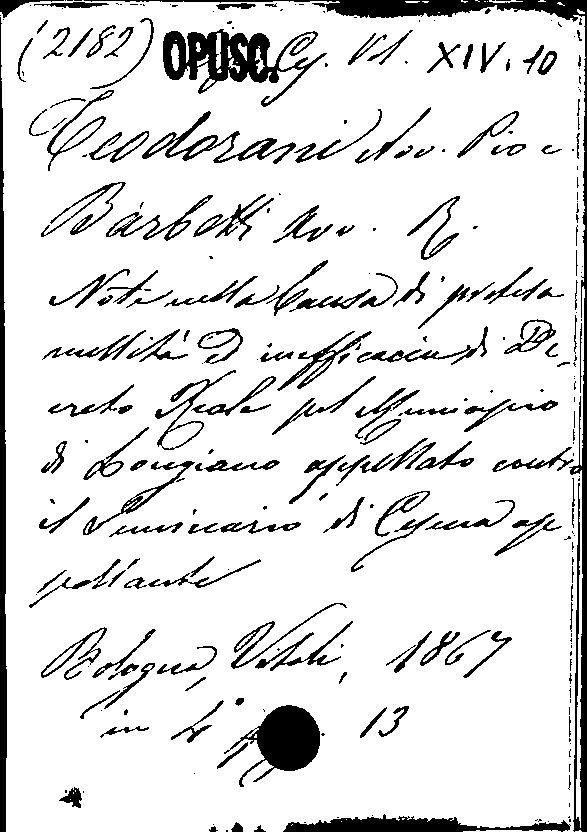 (2182) OPUSC. Cg. Vol. XIV. 10
Teodorani Avv. Pio e
Barbetti Avv. R.
Note nella Causa di pretesa
nullità ed inefficacia di De-
creto Reale pel Municipio
di Longiano appellato contro
il Seminario di Cesena ap-
pellante
Bologna, Vitali, 1867
in 4° pp. 13